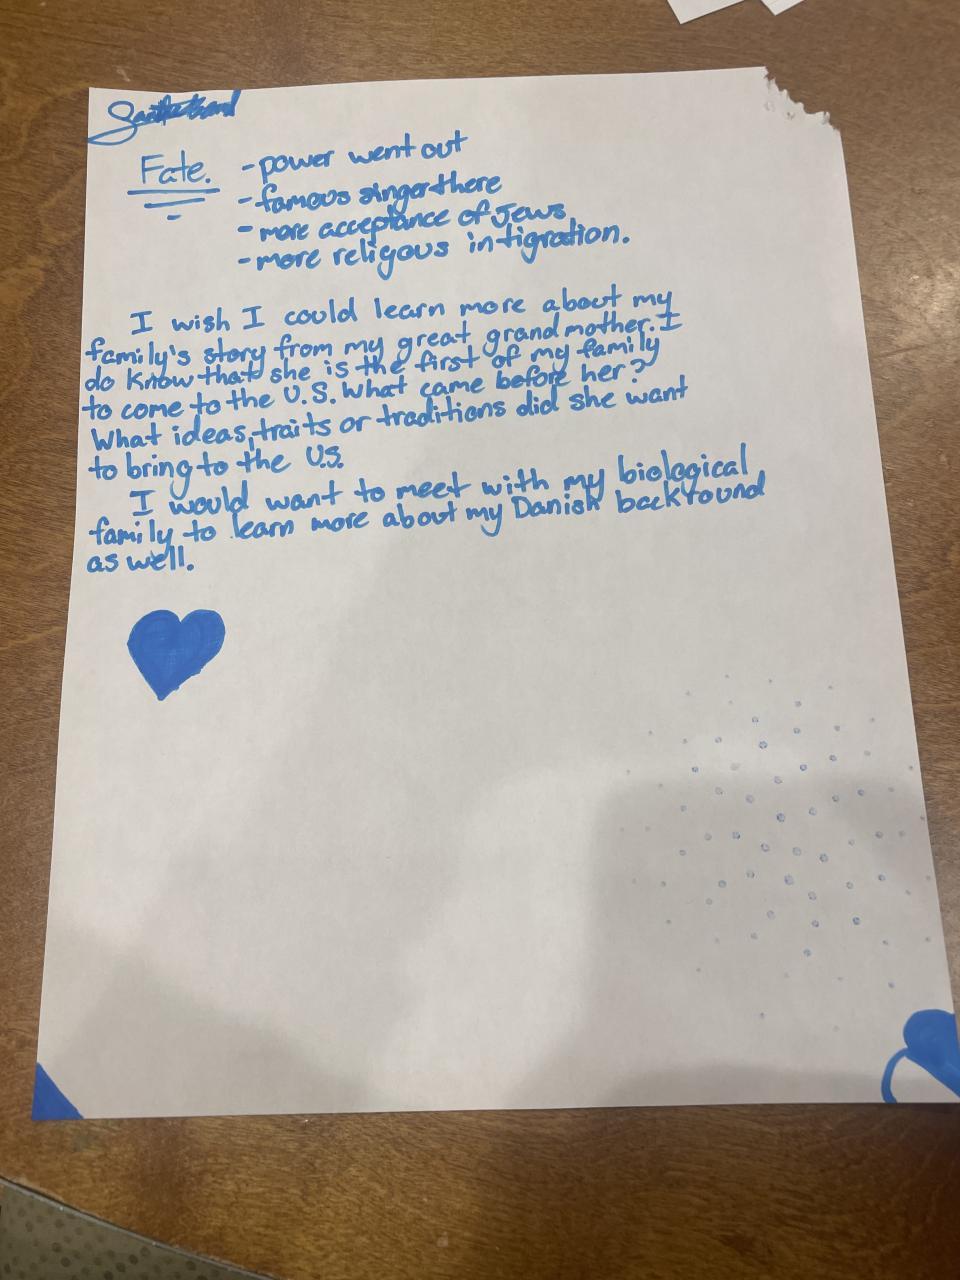 Fate. - power went out
- famous singer there
- more acceptance of Jews
- more religous intigration.
I wish I could learn more about my
family's story from my great grandmother. I
do know that she is the first of my family
to come to the U.S. What came before her?
What ideas, traits or traditions did she want
to bring to the U.S.
I would want to meet with my biological
family to learn more about my Danish backround
as well.